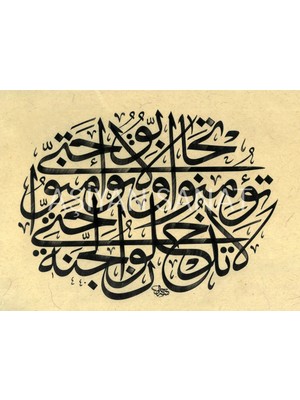 لا تدخلون الجنة حتى
تؤمنوا ولا تؤمنوا
حتى تحابوا